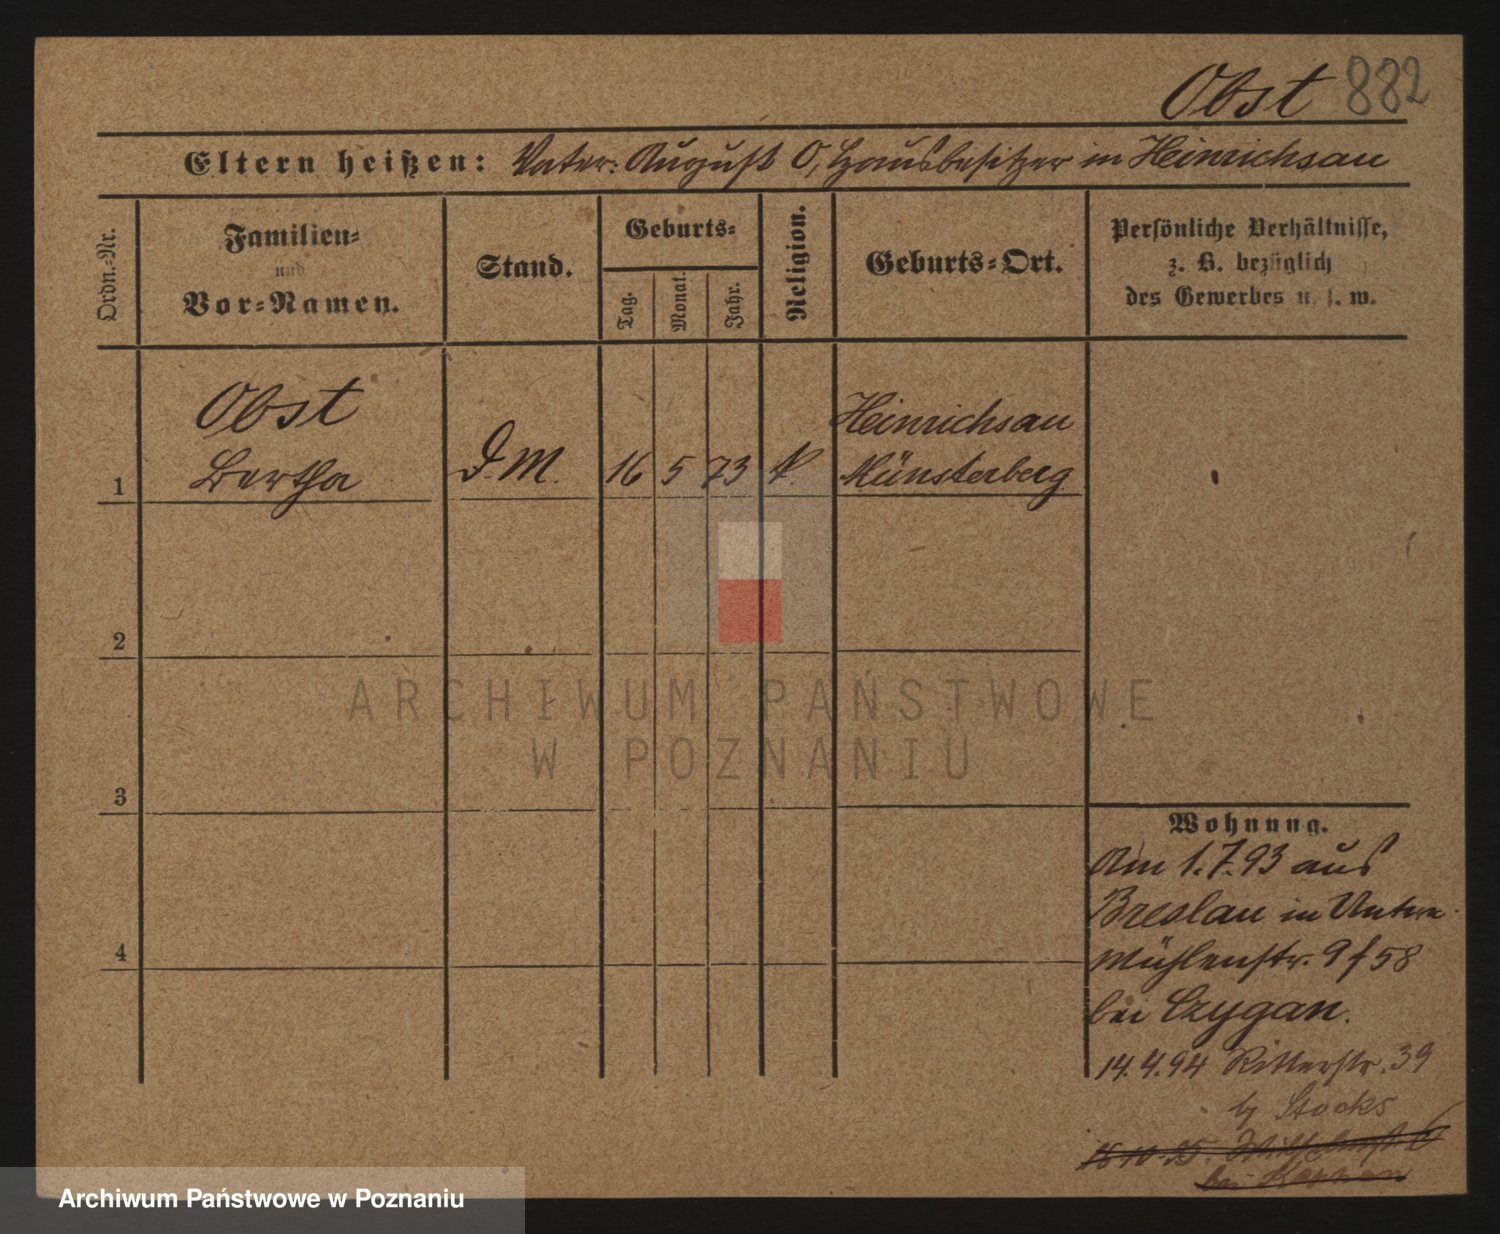 Obst 882
Eltern heißen: Vater: August O, Hausbesitzer in Heinrichsau
Ordn.-Nr.
Familien-
und
Vor-Namen.
Stand.
Geburts-
Tag.
Monat.
Jahr.
Religion.
Geburts-Ort.
Persönliche Verhältnisse,
z. B. bezüglich
des Gewerbes u. s. w.
Obst
Heinrichsau
1 Bertha D. M. 16 5 73 k. Münsterberg
2
ARCHIWUM PAŃSTWOWE
W POZNANIU
3
Wohnung.
Am 1.7.93 aus
Breslau in Unter
4
mühlenstr. 9 f 58
bei Czygan.
14.4.94 Ritterstr. 39
b/ Stocks
bei
Archiwum Państwowe w Poznaniu